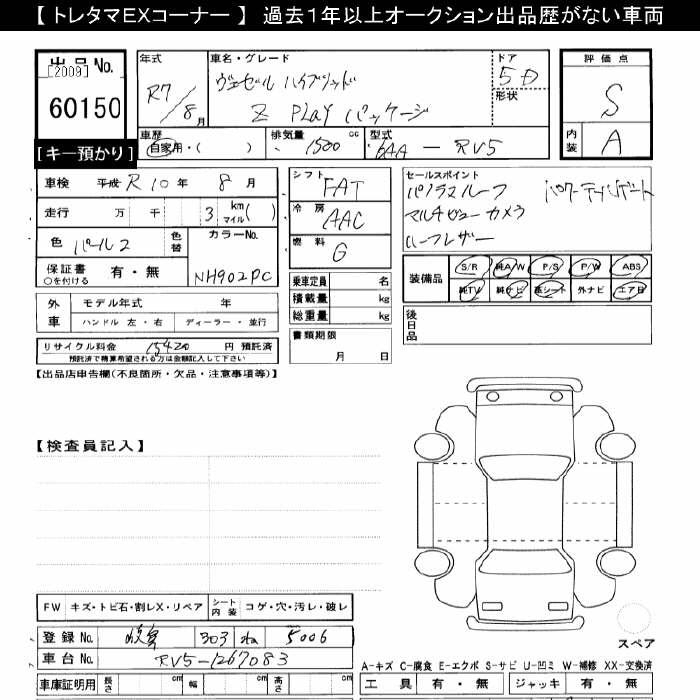 【 トレタマEXコーナー 】 過去１年以上オークション出品歴がない車両
出品No.
[2009]
60150
[キー預かり]
年式 R7/8月
車名・グレード ヴェゼル ハイブリッド
Z PLaY パッケージ
ドア 5D
形状
評価点
S
内装 A
車歴 自家用・( )
排気量 1500 cc
型式 6AA - RV5
車検 平成 R10年 8月
走行 万 千 3 km マイル ( )
色 パール2 色替
カラーNo. NH902PC
保証書 有・無
○を付ける
外車 モデル年式 年
ハンドル 左・右 ディーラー・並行
リサイクル料金 15420 円 預託済
預託済で精算希望される方は金額記入して下さい
シフト FAT
冷房 AAC
燃料 G
乗車定員 名
積載量 kg
総重量 kg
書類期限
月 日
セールスポイント
パノラマルーフ パワーテールゲート
マルチビューカメラ
ハーフレザー
装備品 S/R 純A/W P/S P/W ABS
純TV 純ナビ 革シート 外ナビ エアB
後日品
【出品店申告欄(不良箇所・欠品・注意事項等)】
【検査員記入】
FW キズ・トビ石・割レX・リペア シート内装 コゲ・穴・汚レ・破レ
登録No. 岐阜 303 ね 5006
車台No. RV5-1267083
車庫証明用 長さ cm 幅 cm 高さ cm
スペア
A-キズ C-腐食 E-エクボ S-サビ U-凹ミ W-補修 XX-交換済
工具 有・無 ジャッキ 有・無